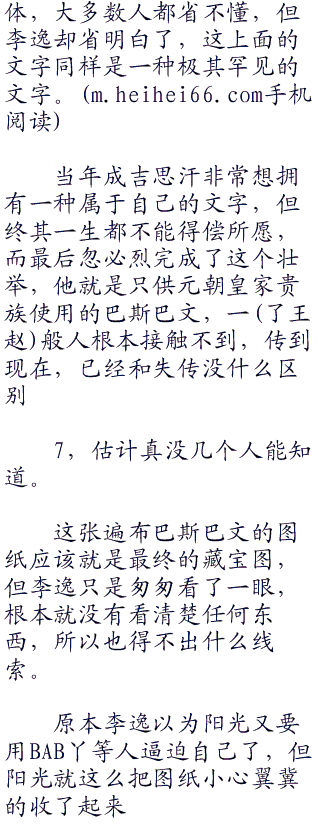 体，大多数人都省不懂，但
李逸却省明白了，这上面的
文字同样是一种极其罕见的
文字。(m.heihei66.com手机
阅读)
当年成吉思汗非常想拥
有一种属于自己的文字，但
终其一生都不能得偿所愿，
而最后忽必烈完成了这个壮
举，他就是只供元朝皇家贵
族使用的巴斯巴文，一(了王
赵)般人根本接触不到，传到
现在，已经和失传没什么区
别
7，估计真没几个人能知
道。
这张遍布巴斯巴文的图
纸应该就是最终的藏宝图，
但李逸只是匆匆看了一眼，
根本就没有看清楚任何东
西，所以也得不出什么线
索。
原本李逸以为阳光又要
用BAB丫等人逼迫自己了，但
阳光就这么把图纸小心翼冀
的收了起来